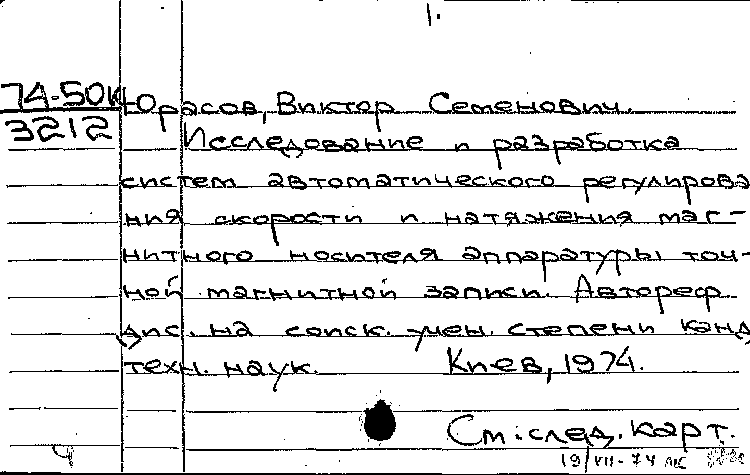 1.
74-50К
3212
Юрасов, Виктор Семенович.
Исследование и разработка
систем автоматического регулирова
ния скорости и натяжения маг-
нитного носителя аппаратуры точ-
ной магнитной записи. Автореф
дис. на соиск. учен. степени канд
техн. наук. Киев, 1974.
См. след. карт.
19/VII-74